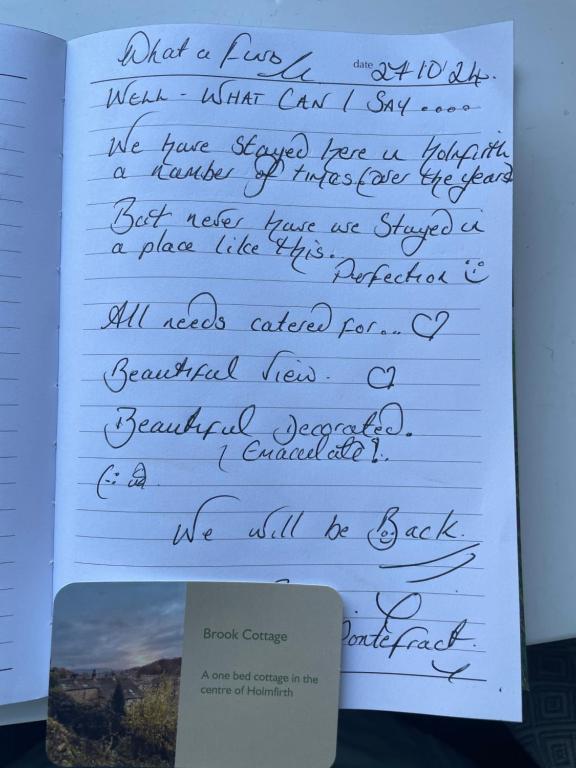 What a Find
date 27 10 '24.
WELL - WHAT CAN I SAY....
We have stayed here in Holmfirth
a number of times (over the years)
But never have we stayed in
a place like this.
Perfection
All needs catered for...
Beautiful View.
Beautiful Decorated.
Emaculate!.
We will be Back.
Pontefract.
Brook Cottage
A one bed cottage in the
centre of Holmfirth